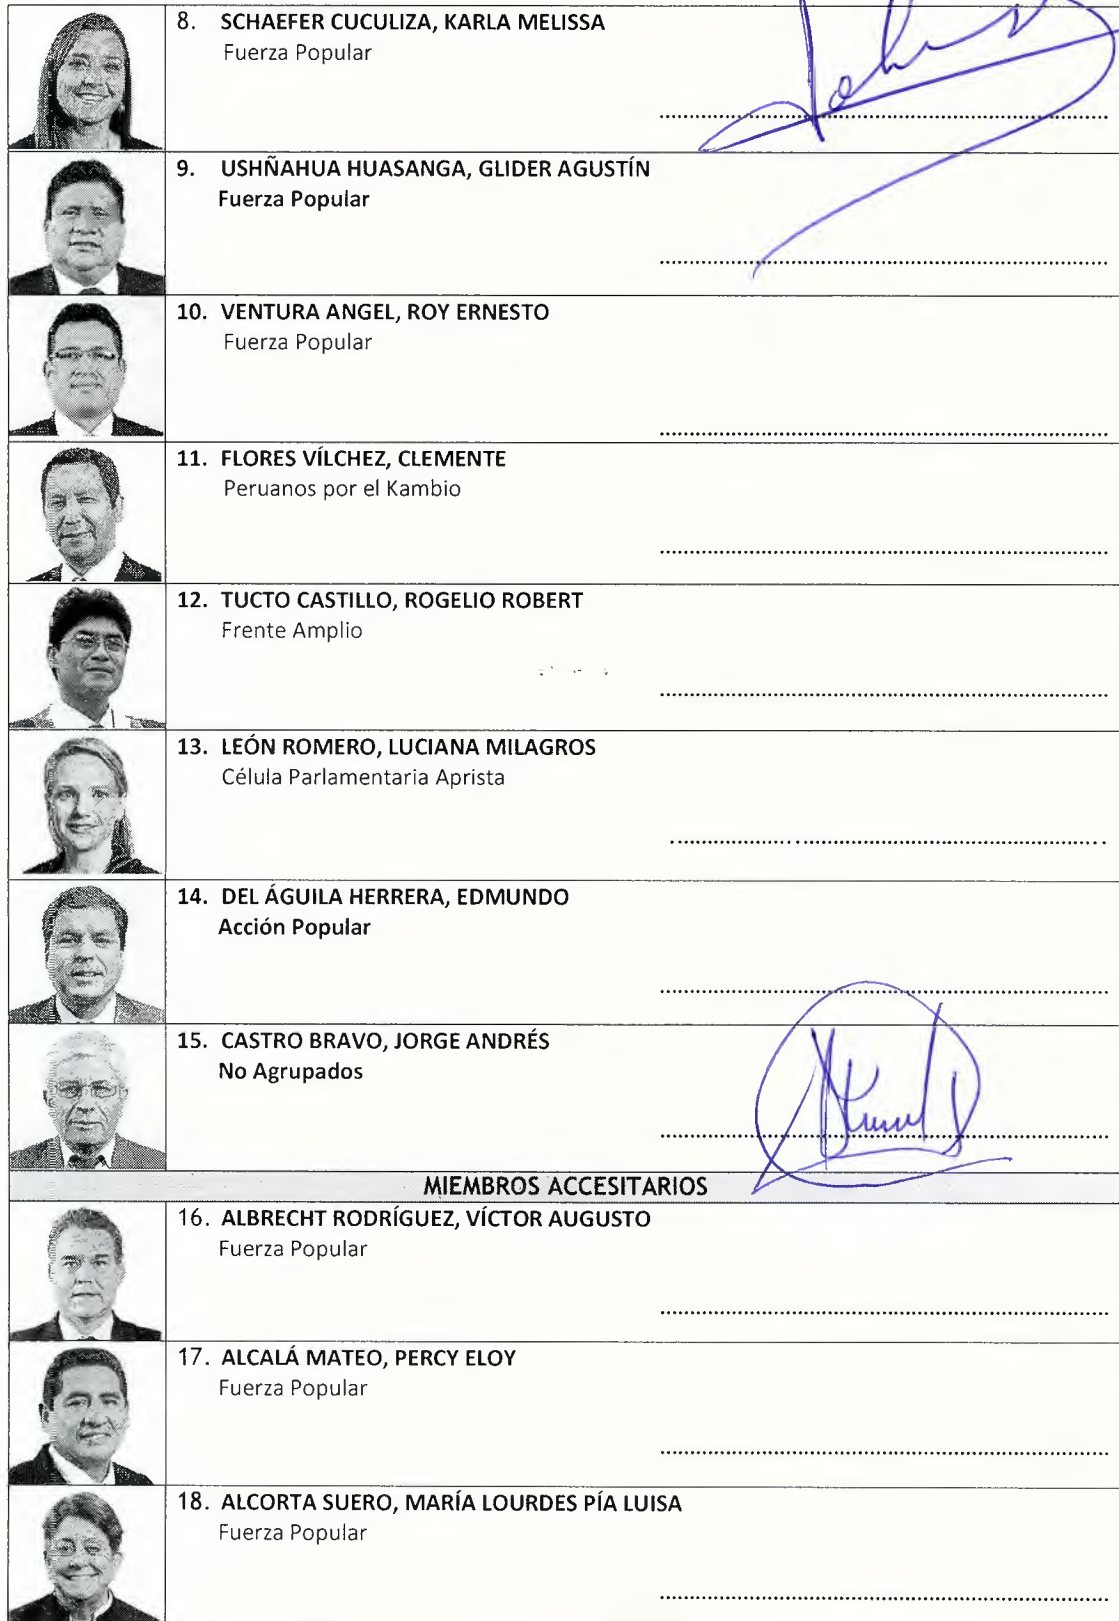 8. SCHAEFER CUCULIZA, KARLA MELISSA
Fuerza Popular
9. USHÑAHUA HUASANGA, GLIDER AGUSTÍN
Fuerza Popular
10. VENTURA ANGEL, ROY ERNESTO
Fuerza Popular
11. FLORES VÍLCHEZ, CLEMENTE
Peruanos por el Kambio
12. TUCTO CASTILLO, ROGELIO ROBERT
Frente Amplio
13. LEÓN ROMERO, LUCIANA MILAGROS
Célula Parlamentaria Aprista
14. DEL ÁGUILA HERRERA, EDMUNDO
Acción Popular
15. CASTRO BRAVO, JORGE ANDRÉS
No Agrupados
MIEMBROS ACCESITARIOS
16. ALBRECHT RODRÍGUEZ, VÍCTOR AUGUSTO
Fuerza Popular
17. ALCALÁ MATEO, PERCY ELOY
Fuerza Popular
18. ALCORTA SUERO, MARÍA LOURDES PÍA LUISA
Fuerza Popular